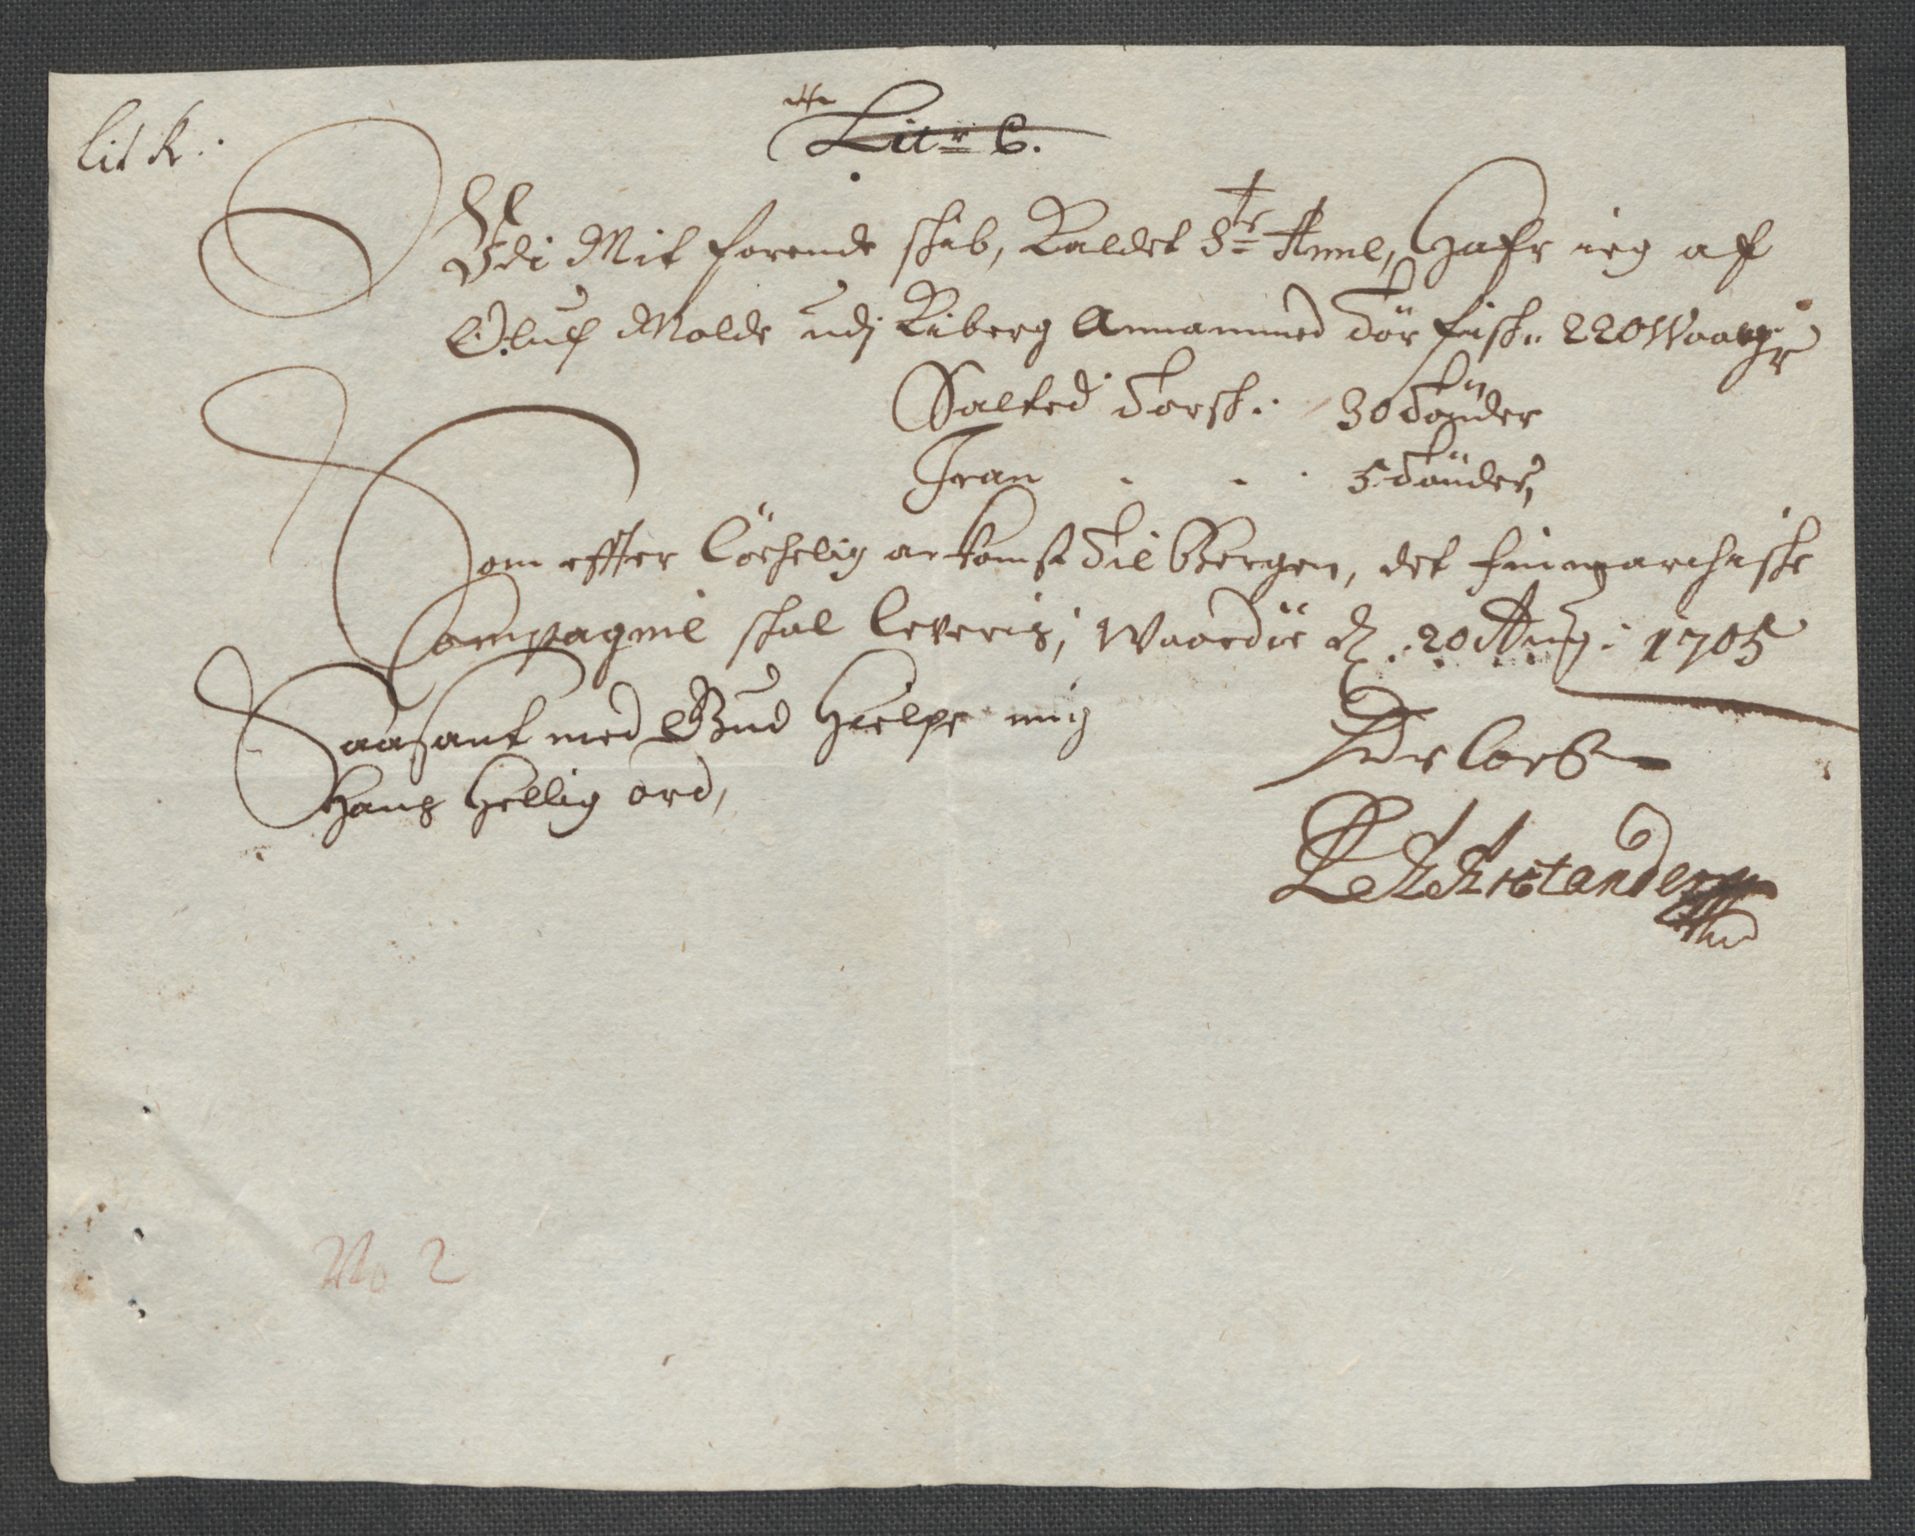 Lit K.
Litr C.
Udi Mit förende skib, Kaldet Ste Anne, Hafr ieg af
Oluf Molde udj Kiberg Annammed Tör fisk: 220 Waager
Salted Torsk: 30 Tönder
Tran 5 Tönder,
Som effter löchelig ankomst Til Bergen, det finmarchiske
Compagnie skal leveris, Waardöe d. 20 Aug: 1705
Saasant med Gud Hielpe mig
Hans Hellig ord,
No 2